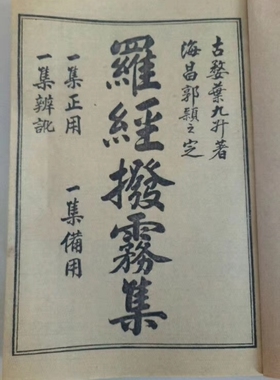 古婺葉九升著
海昌郭顥之定
羅經撥霧集
一集正用
一集辨訛
一集備用